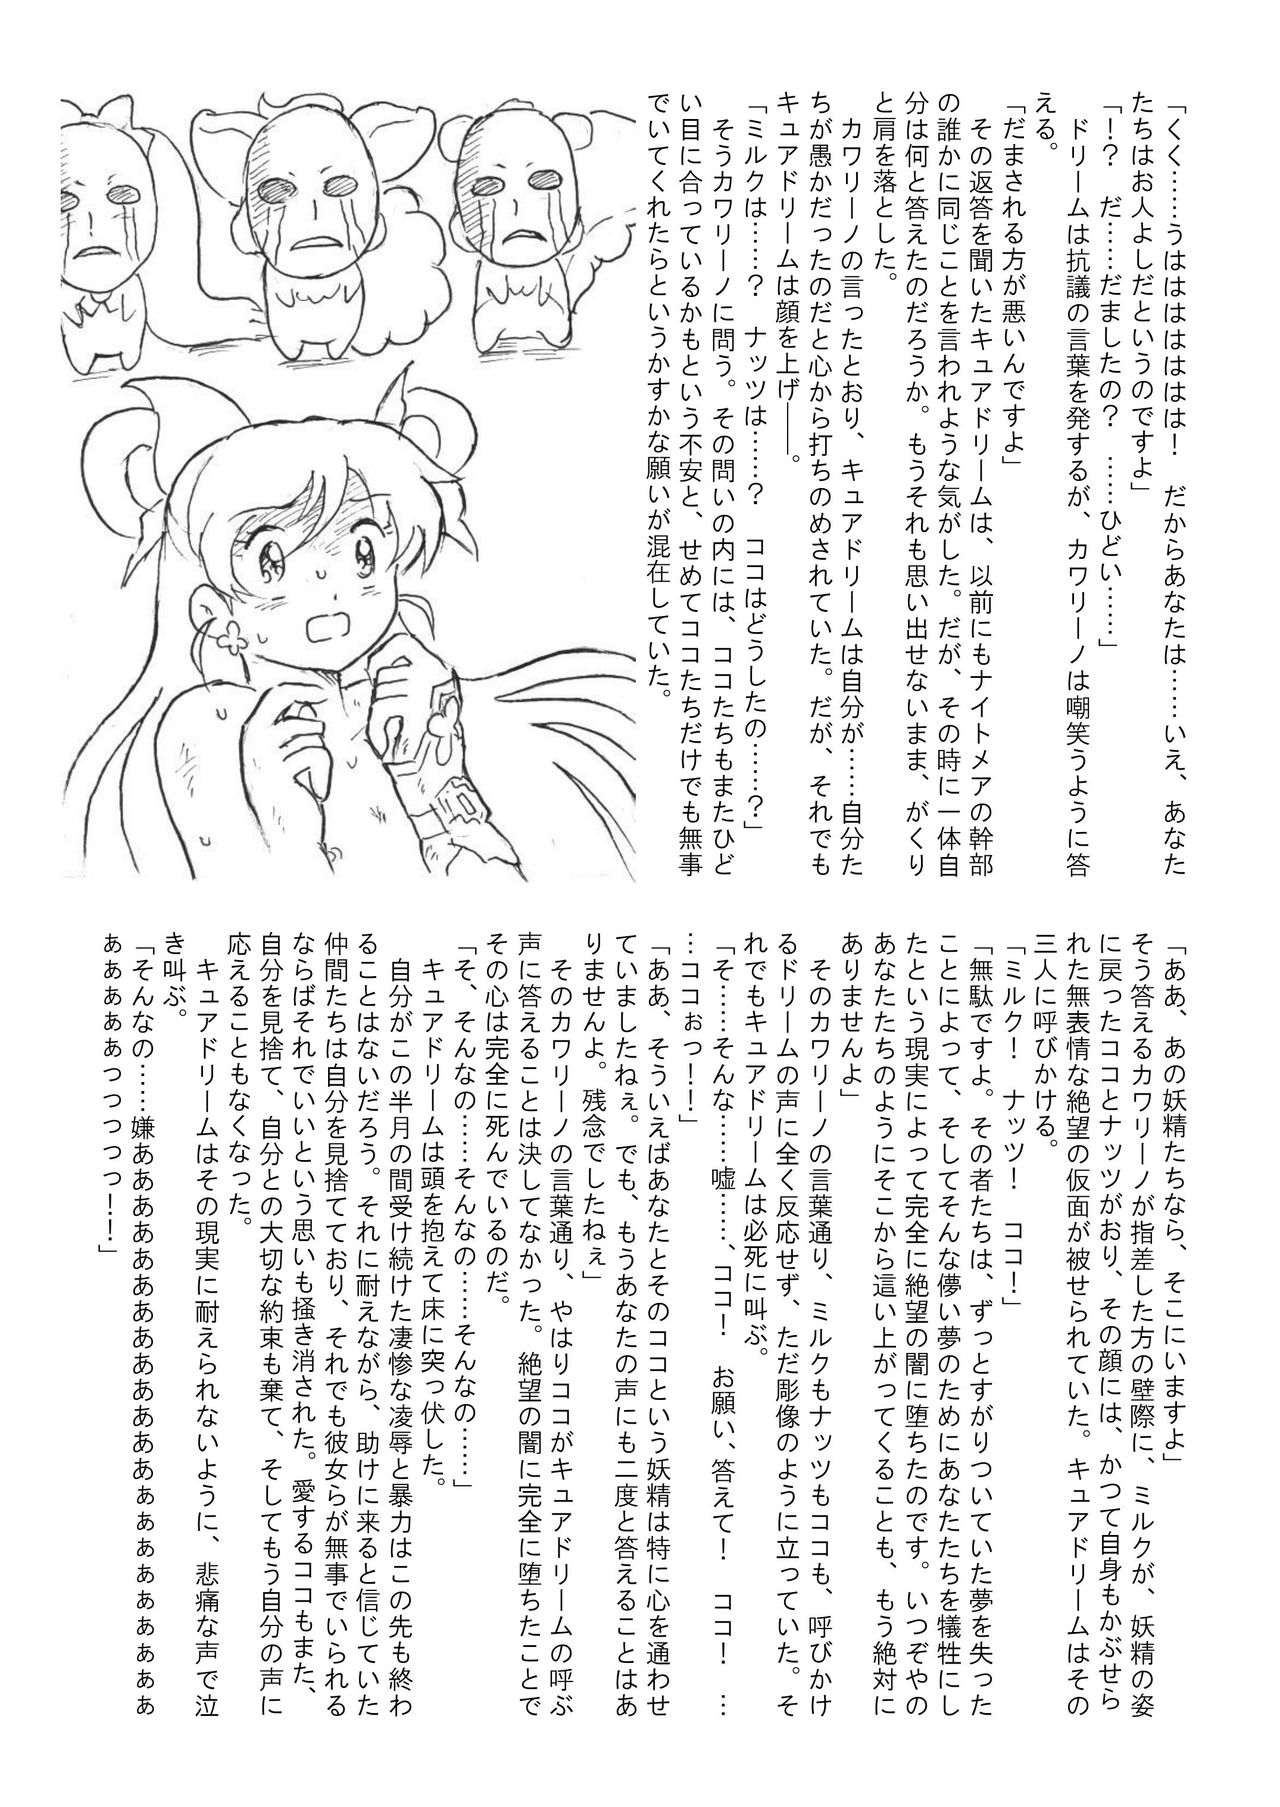 「くく……うはははははは！　だからあなたは……いえ、あなた
たちはお人よしだというのですよ」
「！？　だ……だましたの？　……ひどい……」
　ドリームは抗議の言葉を発するが、カワリーノは嘲笑うように答
える。
「だまされる方が悪いんですよ」
　その返答を聞いたキュアドリームは、以前にもナイトメアの幹部
の誰かに同じことを言われような気がした。だが、その時に一体自
分は何と答えたのだろうか。もうそれも思い出せないまま、がくり
と肩を落とした。
　カワリーノの言ったとおり、キュアドリームは自分が……自分た
ちが愚かだったのだと心から打ちのめされていた。だが、それでも
キュアドリームは顔を上げ――。
「ミルクは……？　ナッツは……？　ココはどうしたの……？」
　そうカワリーノに問う。その問いの内には、ココたちもまたひど
い目に合っているかもという不安と、せめてココたちだけでも無事
でいてくれたらというかすかな願いが混在していた。
「ああ、あの妖精たちなら、そこにいますよ」
そう答えるカワリーノが指差した方の壁際に、ミルクが、妖精の姿
に戻ったココとナッツがおり、その顔には、かつて自身もかぶせら
れた無表情な絶望の仮面が被せられていた。キュアドリームはその
三人に呼びかける。
「ミルク！　ナッツ！　ココ！」
「無駄ですよ。その者たちは、ずっとすがりついていた夢を失った
ことによって、そしてそんな儚い夢のためにあなたたちを犠牲にし
たという現実によって完全に絶望の闇に堕ちたのです。いつぞやの
あなたたちのようにそこから這い上がってくることも、もう絶対に
ありませんよ」
　そのカワリーノの言葉通り、ミルクもナッツもココも、呼びかけ
るドリームの声に全く反応せず、ただ彫像のように立っていた。そ
れでもキュアドリームは必死に叫ぶ。
「そ……そんな……嘘……、ココ！　お願い、答えて！　ココ！　…
…ココぉっ！！」
「ああ、そういえばあなたとそのココという妖精は特に心を通わせ
ていましたねぇ。でも、もうあなたの声にも二度と答えることはあ
りませんよ。残念でしたねぇ」
　そのカワリーノの言葉通り、やはりココがキュアドリームの呼ぶ
声に答えることは決してなかった。絶望の闇に完全に堕ちたことで
その心は完全に死んでいるのだ。
「そ、そんなの……そんなの……そんなの……」
　キュアドリームは頭を抱えて床に突っ伏した。
　自分がこの半月の間受け続けた凄惨な凌辱と暴力はこの先も終わ
ることはないだろう。それに耐えながら、助けに来ると信じていた
仲間たちは自分を見捨てており、それでも彼女らが無事でいられる
ならばそれでいいという思いも掻き消された。愛するココもまた、
自分を見捨て、自分との大切な約束も棄て、そしてもう自分の声に
応えることもなくなった。
　キュアドリームはその現実に耐えられないように、悲痛な声で泣
き叫ぶ。
「そんなの……嫌あああああああああああああああぁぁぁぁぁぁぁ
ぁぁぁぁぁぁっっっっっ！！」